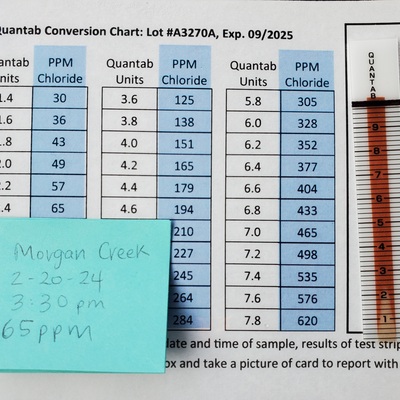 Quantab Conversion Chart: Lot #A3270A, Exp. 09/2025
Quantab Units PPM Chloride Quantab Units PPM Chloride Quantab Units PPM Chloride
1.4 30 3.6 125 5.8 305
1.6 36 3.8 138 6.0 328
1.8 43 4.0 151 6.2 352
2.0 49 4.2 165 6.4 377
2.2 57 4.4 179 6.6 404
2.4 65 4.6 194 6.8 433
210 7.0 465
227 7.2 498
245 7.4 535
264 7.6 576
284 7.8 620
Morgan Creek
2-20-24
3:30 pm
65 ppm
date and time of sample, results of test strip
box and take a picture of card to report with
QUANTAB
9
8
7
6
5
4
3
2
1